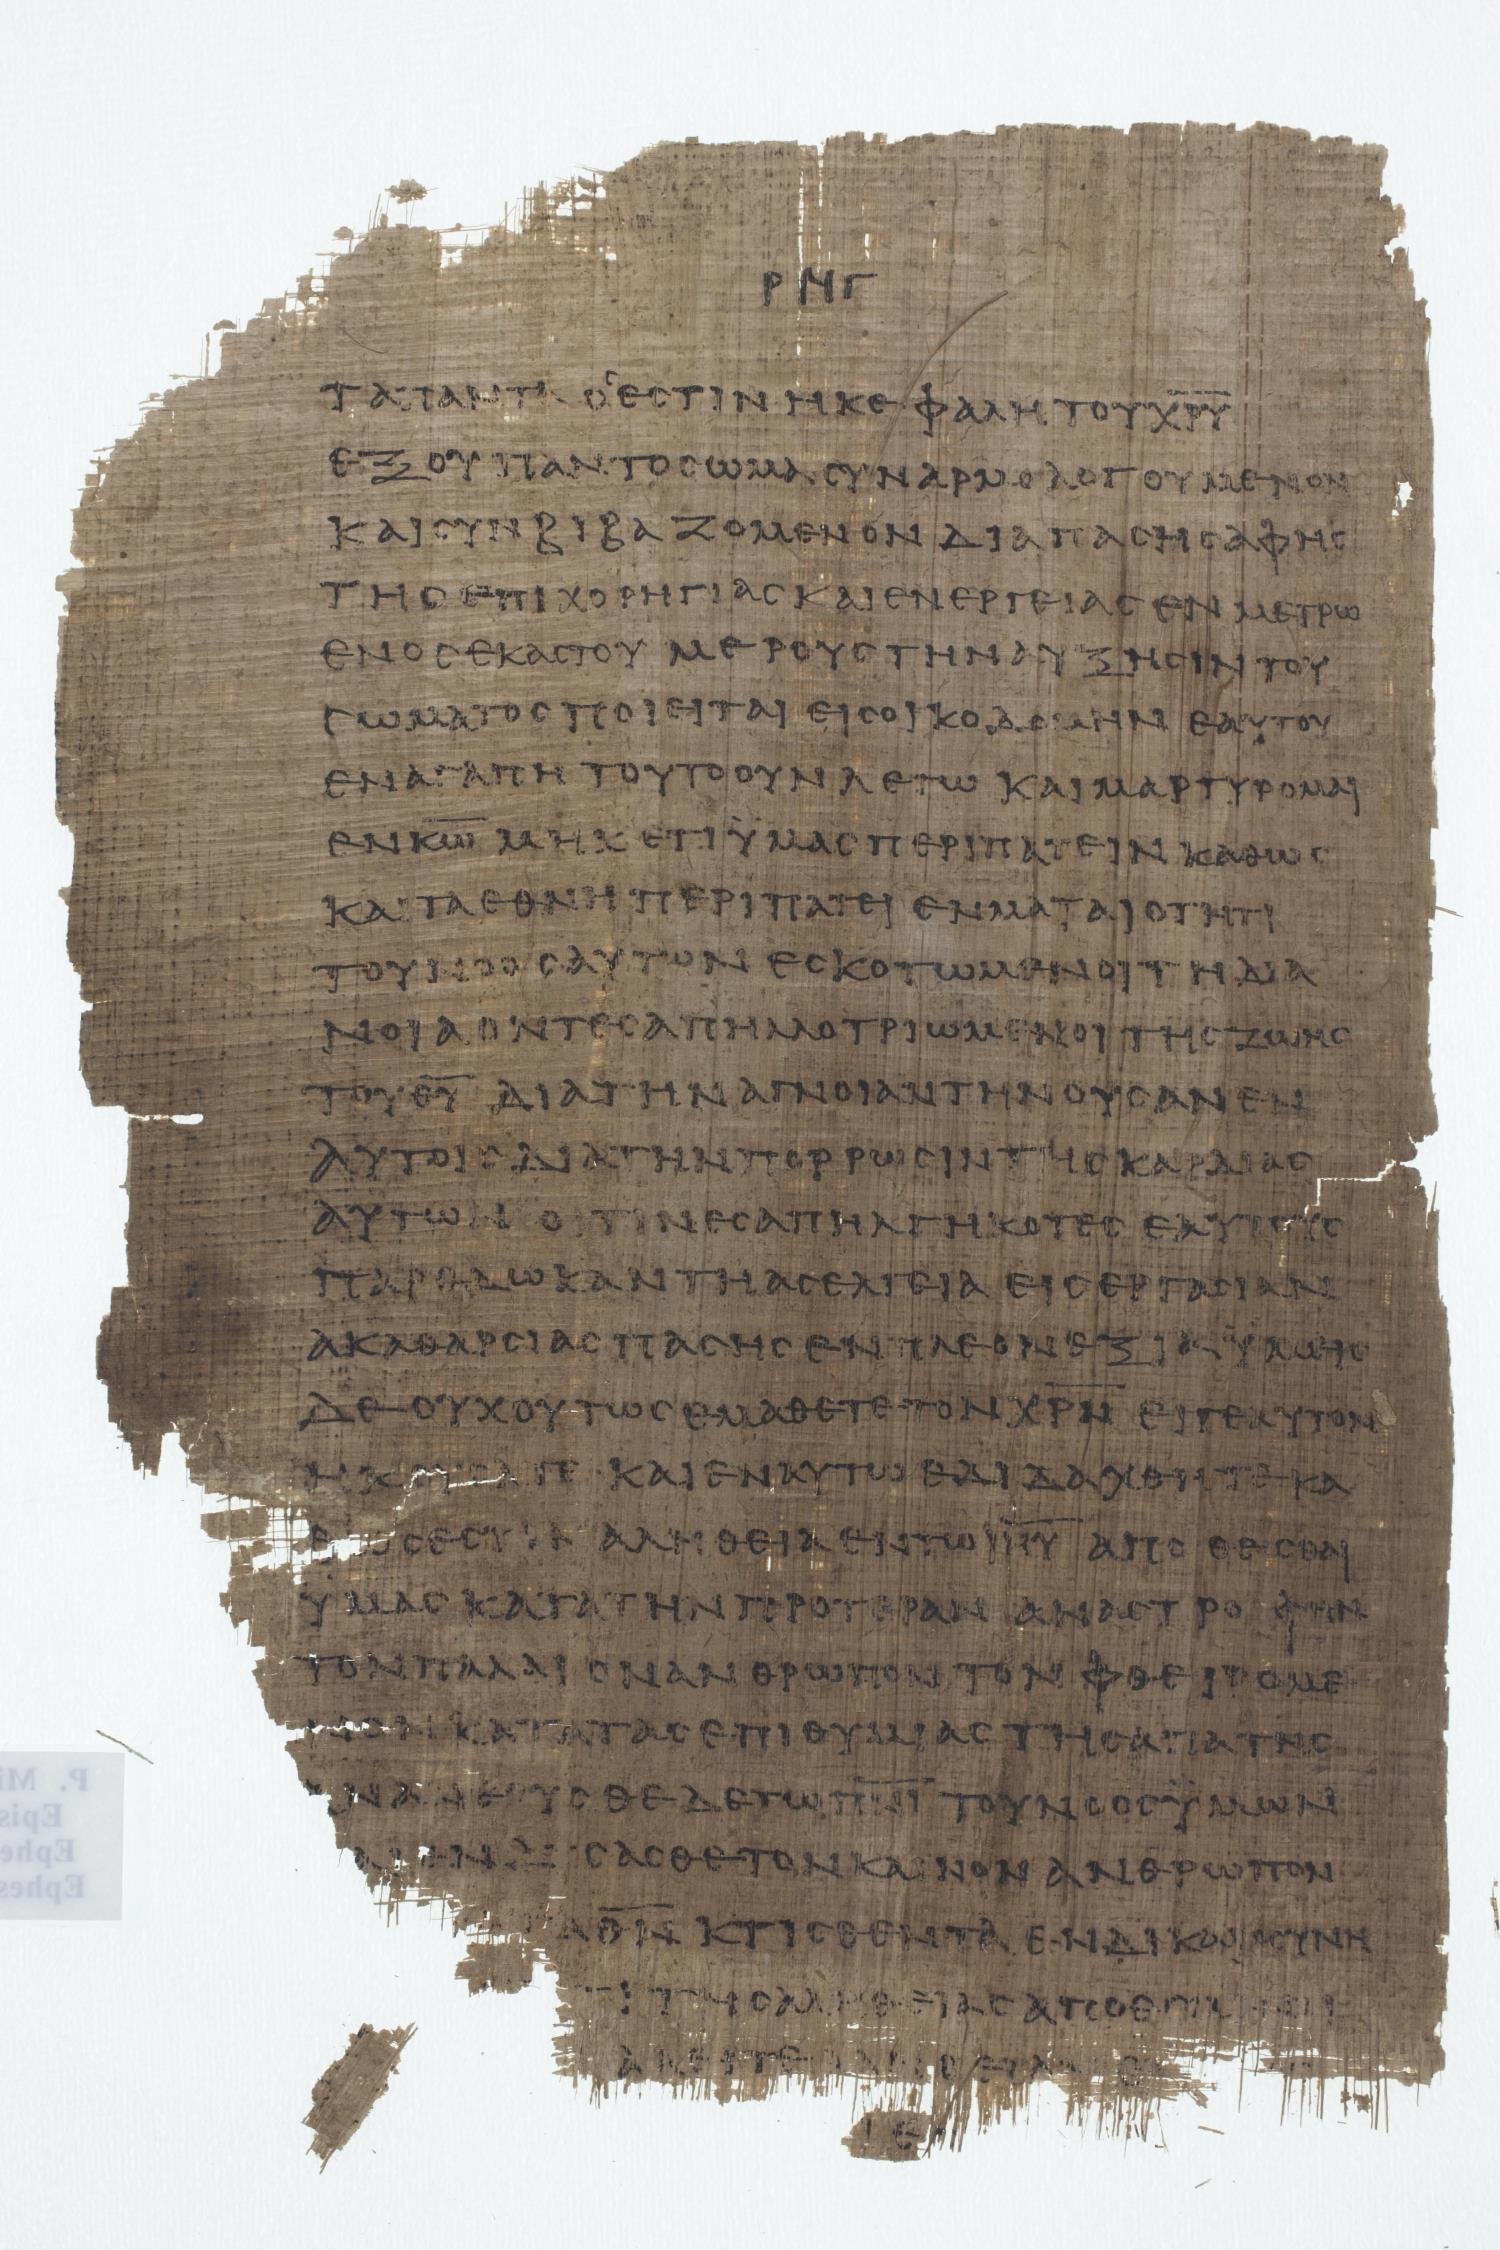 ΡΜΓ
ΤΑ ΠΑΝΤΑ ΟϹ ΕϹΤΙΝ Η ΚΕΦΑΛΗ ΤΟΥ Χ̅Ρ̅Υ̅
ΕΞ ΟΥ ΠΑΝ ΤΟ ϹΩΜΑ ϹΥΝΑΡΜΟΛΟΓΟΥΜΕΝΟΝ
ΚΑΙ ϹΥΝΒΙΒΑΖΟΜΕΝΟΝ ΔΙΑ ΠΑϹΗϹ ΑΦΗϹ
ΤΗϹ ΕΠΙΧΟΡΗΓΙΑϹ ΚΑΙ ΕΝΕΡΓΕΙΑϹ ΕΝ ΜΕΤΡΩ
ΕΝΟϹ ΕΚΑϹΤΟΥ ΜΕΡΟΥϹ ΤΗΝ ΑΥΞΗϹΙΝ ΤΟΥ
ϹΩΜΑΤΟϹ ΠΟΙΕΙΤΑΙ ΕΙϹ ΟΙΚΟΔΟΜΗΝ ΕΑΥΤΟΥ
ΕΝ ΑΓΑΠΗ ΤΟΥΤΟ ΟΥΝ ΛΕΓΩ ΚΑΙ ΜΑΡΤΥΡΟΜΑΙ
ΕΝ Κ̅Ω̅ ΜΗΚΕΤΙ ΫΜΑϹ ΠΕΡΙΠΑΤΕΙΝ ΚΑΘΩϹ
ΚΑΙ ΤΑ ΕΘΝΗ ΠΕΡΙΠΑΤΕΙ ΕΝ ΜΑΤΑΙΟΤΗΤΙ
ΤΟΥ ΝΟΟϹ ΑΥΤΩΝ ΕϹΚΟΤΩΜΕΝΟΙ ΤΗ ΔΙΑ
ΝΟΙΑ ΟΝΤΕϹ ΑΠΗΛΛΟΤΡΙΩΜΕΝΟΙ ΤΗϹ ΖΩΗϹ
ΤΟΥ Θ̅Υ̅ ΔΙΑ ΤΗΝ ΑΓΝΟΙΑΝ ΤΗΝ ΟΥϹΑΝ ΕΝ
ΑΥΤΟΙϹ ΔΙΑ ΤΗΝ ΠΟΡΡΩϹΙΝ ΤΗϹ ΚΑΡΔΙΑϹ
ΑΥΤΩΝ ΟΙΤΙΝΕϹ ΑΠΗΛΓΗΚΟΤΕϹ ΕΑΥΤΟΥϹ
ΠΑΡΕΔΩΚΑΝ ΤΗ ΑϹΕΛΓΕΙΑ ΕΙϹ ΕΡΓΑϹΙΑΝ
ΑΚΑΘΑΡϹΙΑϹ ΠΑϹΗϹ ΕΝ ΠΛΕΟΝΕΞΙΑ ΫΜΕΙϹ
ΔΕ ΟΥΧ ΟΥΤΩϹ ΕΜΑΘΕΤΕ ΤΟΝ Χ̅Ρ̅Ν̅ ΕΙΓΕ ΑΥΤΟΝ
ΗΚΟΥϹΑΤΕ ΚΑΙ ΕΝ ΑΥΤΩ ΕΔΙΔΑΧΘΗΤΕ ΚΑ
ΘΩϹ ΕϹΤΙΝ ΑΛΗΘΕΙΑ ΕΝ ΤΩ Ι̅Η̅Υ̅ ΑΠΟΘΕϹΘΑΙ
ΫΜΑϹ ΚΑΤΑ ΤΗΝ ΠΡΟΤΕΡΑΝ ΑΝΑϹΤΡΟΦΗΝ
ΤΟΝ ΠΑΛΑΙΟΝ ΑΝΘΡΩΠΟΝ ΤΟΝ ΦΘΕΙΡΟΜΕ
ΝΟΝ ΚΑΤΑ ΤΑϹ ΕΠΙΘΥΜΙΑϹ ΤΗϹ ΑΠΑΤΗϹ
ΑΝΑΝΕΟΥϹΘΕ ΔΕ ΤΩ Π̅Ν̅Ι̅ ΤΟΥ ΝΟΟϹ ΫΜΩΝ
ΚΑΙ ΕΝΔΥϹΑϹΘΕ ΤΟΝ ΚΑΙΝΟΝ ΑΝΘΡΩΠΟΝ
Θ̅Ν̅ ΚΤΙϹΘΕΝΤΑ ΕΝ ΔΙΚΑΙΟϹΥΝΗ
ΤΗϹ ΑΛΗΘΕΙΑϹ ΑΠΟΘΕΜΕΝΟΙ